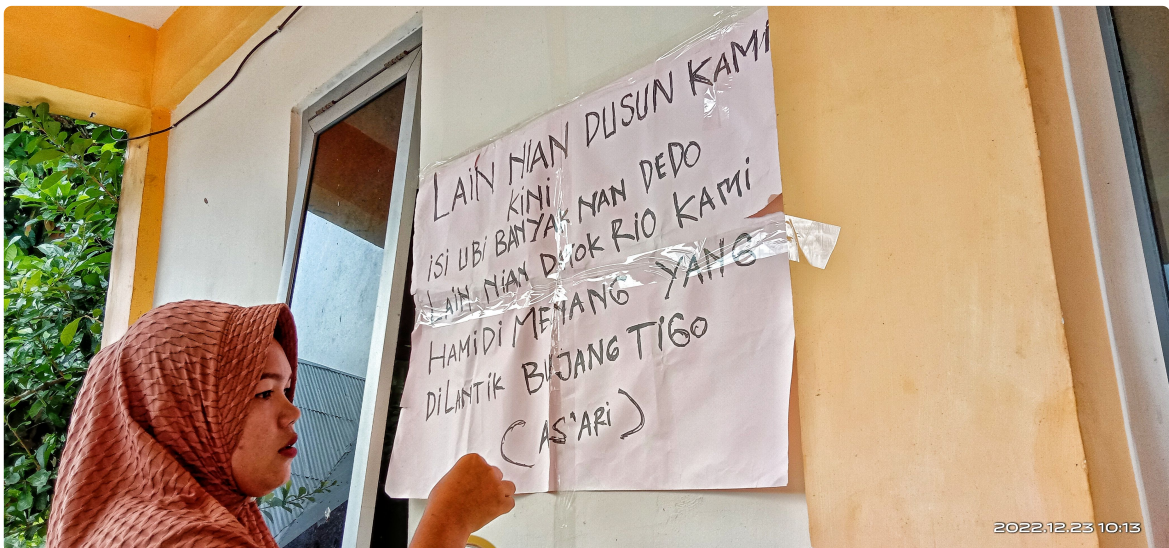 LAIN NIAN DUSUN KAMI
KINI
ISI UBI BANYAK NAN DEDO
LAIN NIAN DUOK RIO KAMI
HAMIDI MENANG YANG
DILANTIK BUJANG TIGO
(AS'ARI)
2022.12.23 10:13